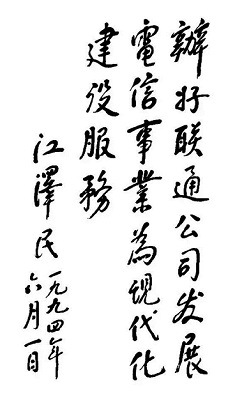 辦好联通公司发展
電信事業為现代化
建设服務
江澤民
一九九四年
六月一日